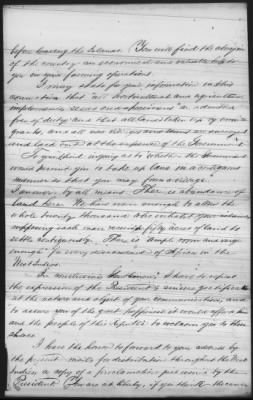 before leaving the Islands. You will find the
of the country an economical and valuable help to
you in your farming operations.
I may state for your information in this
connection that all horticultural and agricultural
implements, seeds and are admitted
free of duty, and that all lands taken up by
grants, and all are surveyed
and laid out at the expense of the Government.
To your third inquiry as to whether the Government
would permit you to take up land in a contiguous
manner so that you may for a village,
I answer, by all means. There is abundance of
land here. We have room enough to allow the
whole twenty thousand who inhabit your islands
supposing each man fifty acres of land to
settle contiguously. There is ample room and
enough for every descendant of Africa in the
West Indies.
In I have to repeat
the expression of the President's sincere gratification
at the nature and object of your communication, and
to assure you of the great happiness it would afford him
and the people of this Republic to welcome you to these
shores.
I have the honor to forward to your address by
the present mails for distribution throughout the West
Indies a copy of a proclamation just issued by the
President. You are at liberty, if you think the